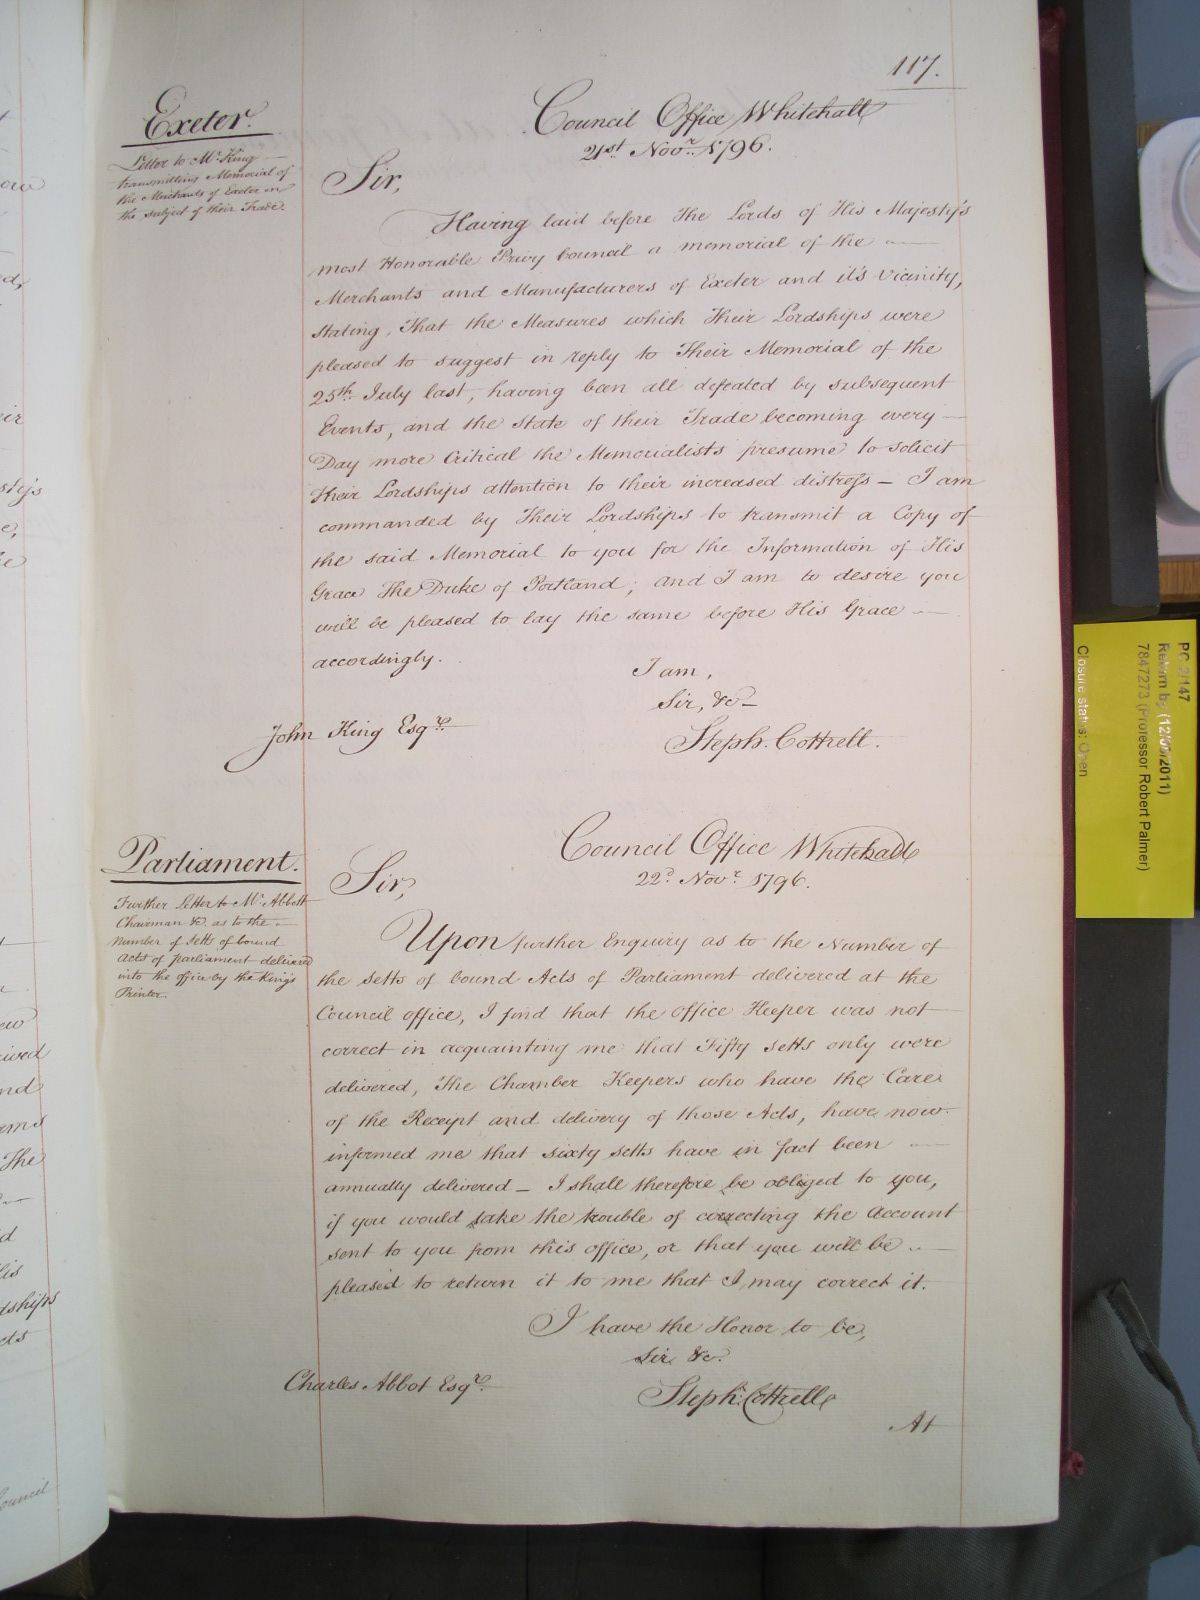 117.
Exeter.
Letter to Mr. King
transmitting Memorial of
the Merchants of Exeter on
the subject of their Trade.
Council Office Whitehall
21st Novr. 1796.
Sir,
Having laid before The Lords of His Majesty's
most Honorable Privy Council a memorial of the
Merchants and Manufacturers of Exeter and it's Vicinity,
stating, That the Measures which Their Lordships were
pleased to suggest in reply to Their Memorial of the
25th. July last, having been all defeated by subsequent
Events, and the State of their Trade becoming every
Day more Critical the Memorialists presume to solicit
their Lordships attention to their increased distress – I am
commanded by Their Lordships to transmit a Copy of
the said Memorial to you for the Information of His
Grace The Duke of Portland; and I am to desire you
will be pleased to lay the same before His Grace
accordingly.
I am,
Sir, &c
John King Esqre.
Steph. Cottrell.
Parliament.
Further Letter to Mr. Abbott
Chairman &c. as to the
Number of Setts of bound
Acts of parliament delivered
into the office by the King's
Printer.
Council Office Whitehall
22d. Novr. 1796.
Sir,
Upon further Enquiry as to the Number of
the setts of bound Acts of Parliament delivered at the
Council office, I find that the office Keeper was not
correct in acquainting me that Fifty setts only were
delivered, The Chamber Keepers who have the Care
of the Receipt and delivery of those Acts, have now
informed me that sixty setts have in fact been
annually delivered – I shall therefore be obliged to you,
if you would take the trouble of correcting the Account
sent to you from this office, or that you will be
pleased to return it to me that I may correct it.
I have the Honor to be,
Sir &c.
Charles Abbot Esqre.
Steph: Cottrell
At
PC 2/147
Return by (12/09/2011)
7847273 (Professor Robert Palmer)
Closure status: Open